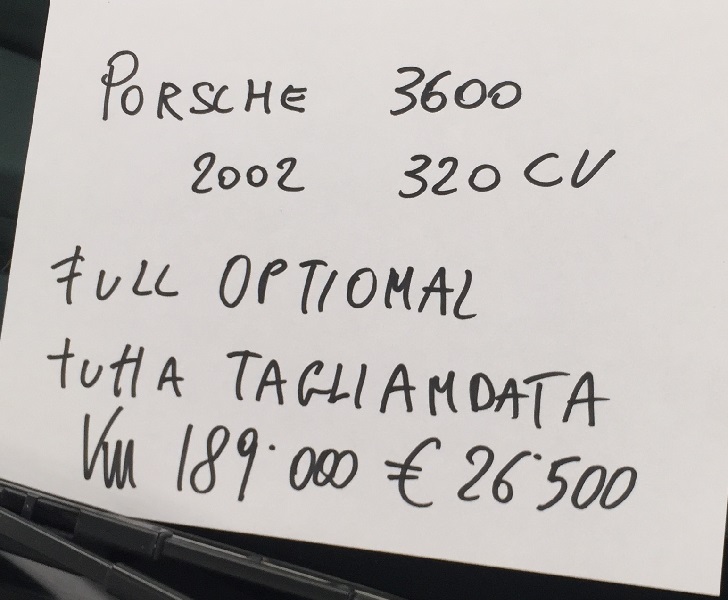 PORSCHE 3600
2002 320 CV
FULL OPTIONAL
tuttA TAGLIANDATA
Km 189.000 € 26.500